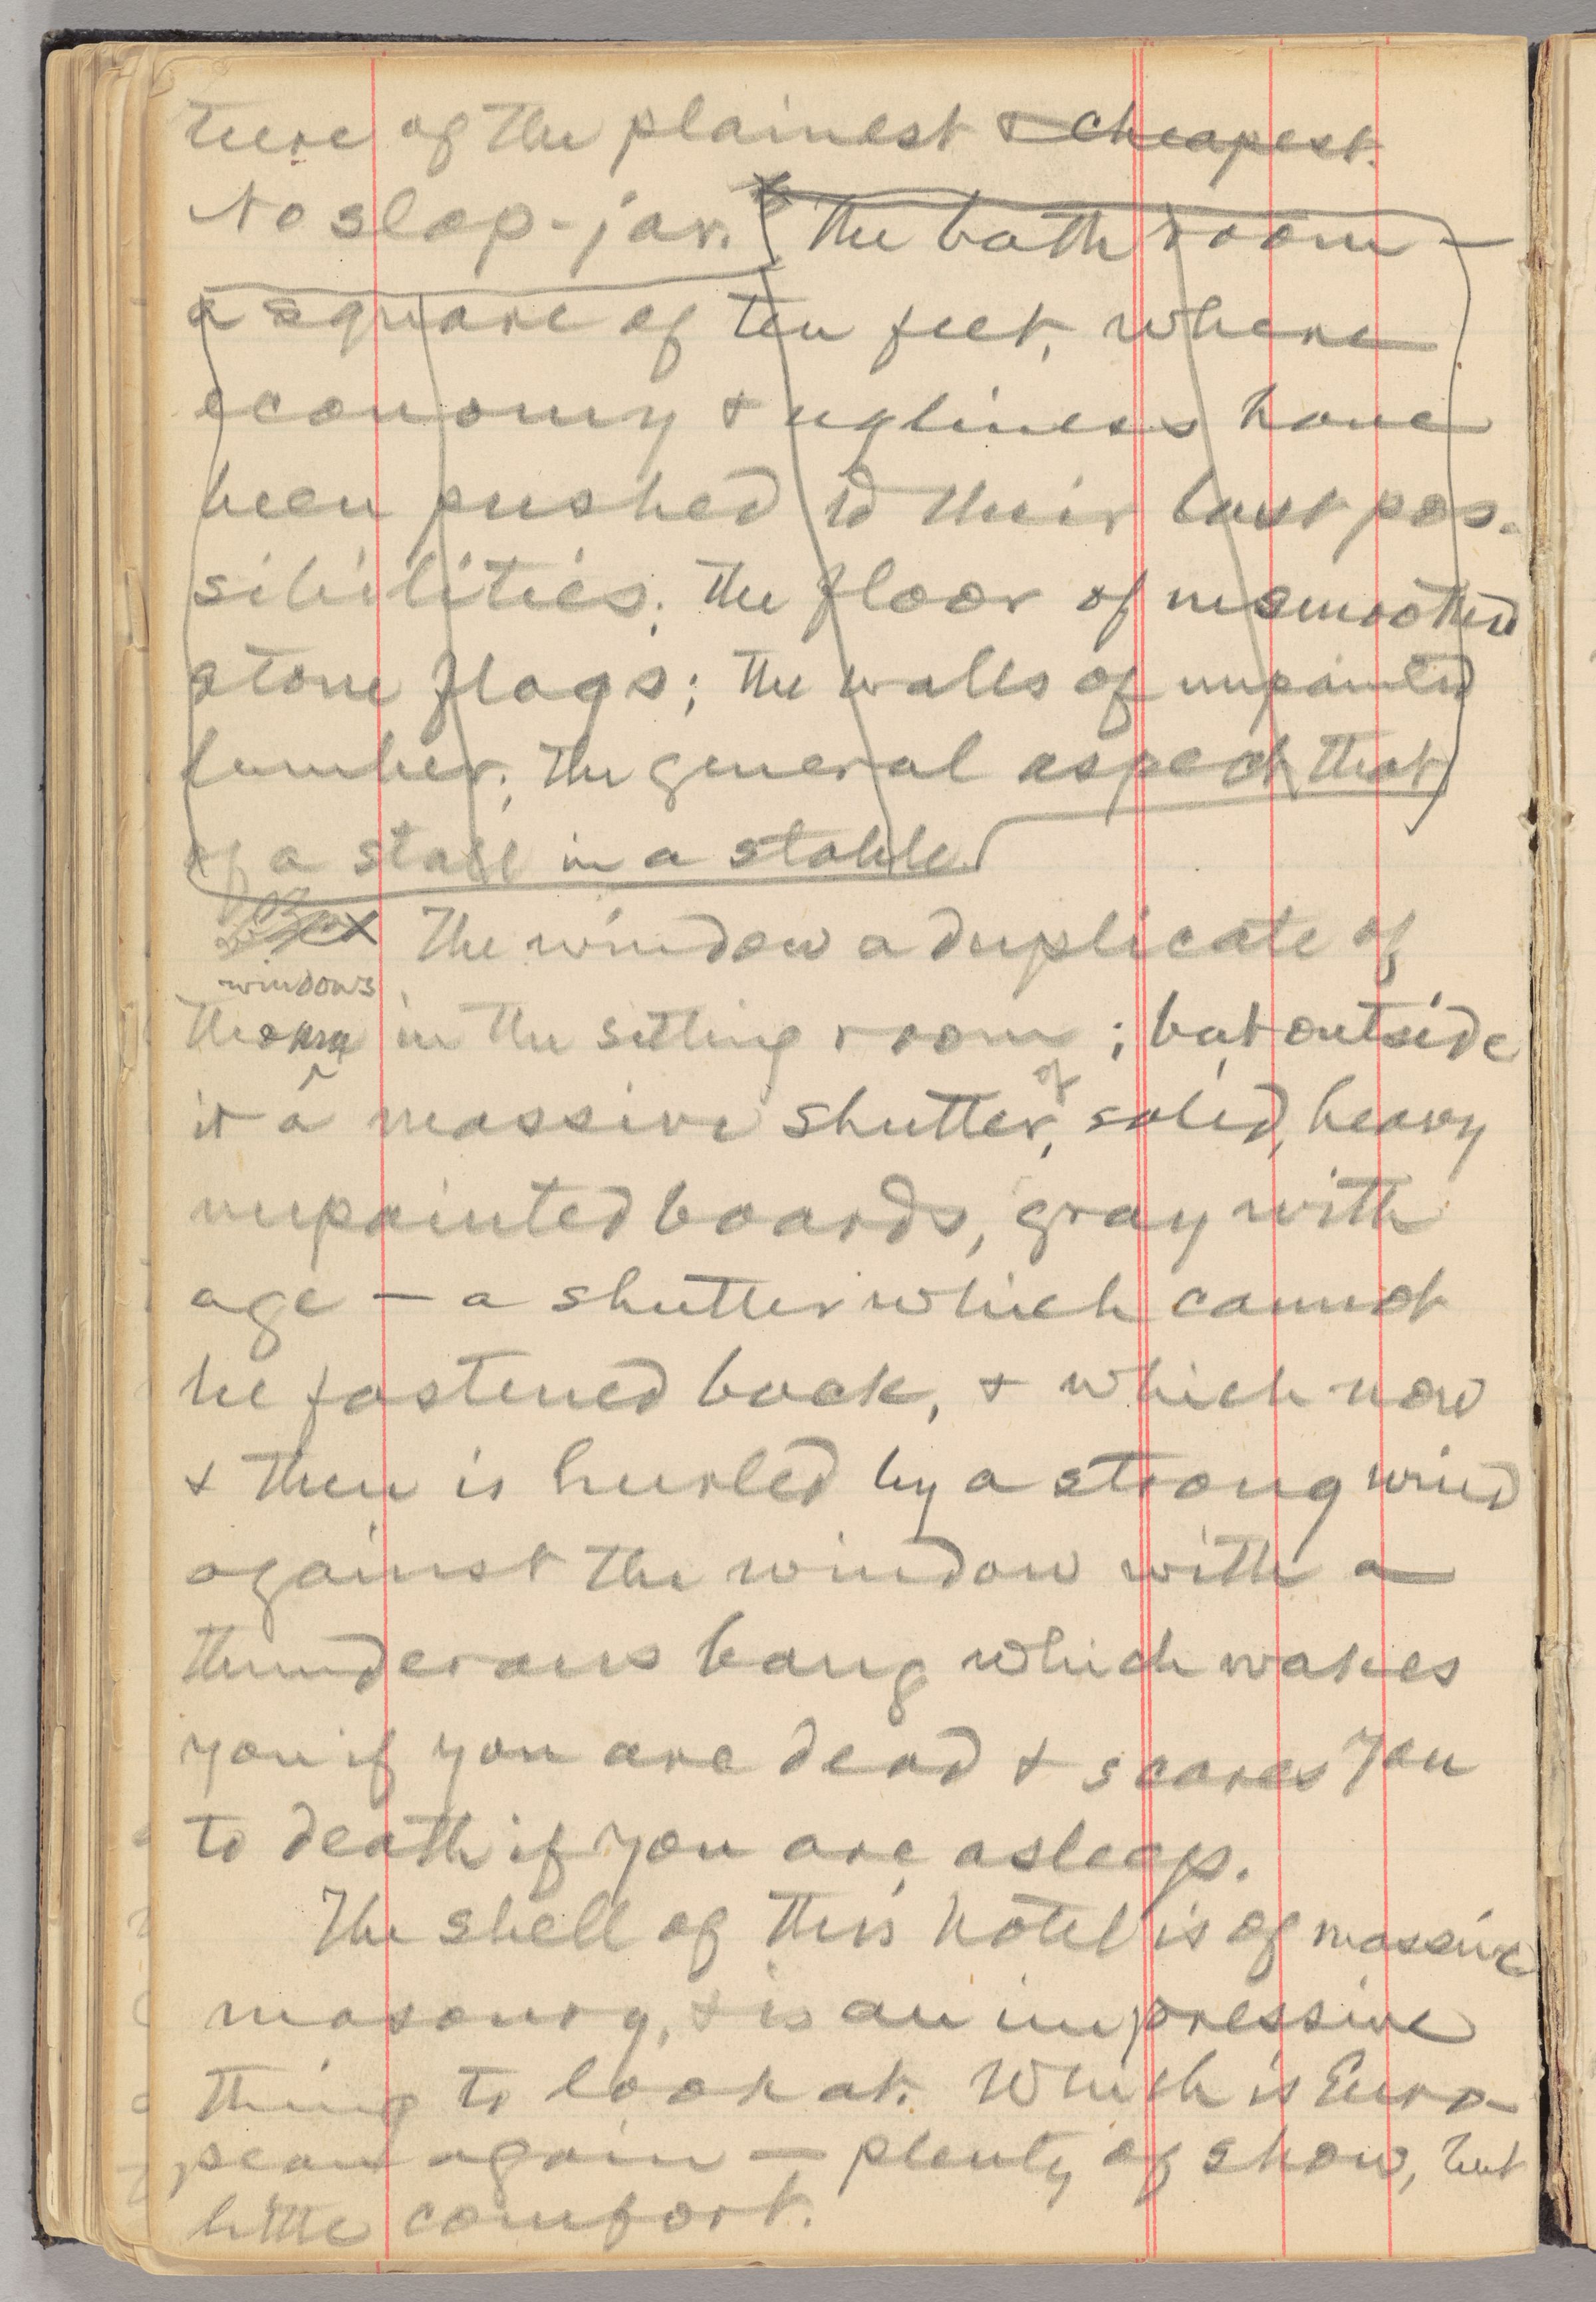 ture of the plainest & cheapest.
No slop-jar. The bath room —
a square of ten feet, where
economy & ugliness have
been pushed to their last pos-
sibilities; the floor of unsmoothed
stone flags; the walls of unpainted
lumber; the general aspect that
of a stall in a stable.
The window a duplicate of
windows
the in the sitting room; but outside
of
it a massive shutter, solid, heavy
unpainted boards, gray with
age — a shutter which cannot
be fastened back, & which now
& then is hurled by a strong wind
against the window with a
thunderous bang which wakes
you if you are dead & scares you
to death if you are asleep.
The shell of this hotel is of massive
masonry, & is an impressive
thing to look at. Which is Euro-
pean again — plenty of show, but
little comfort.